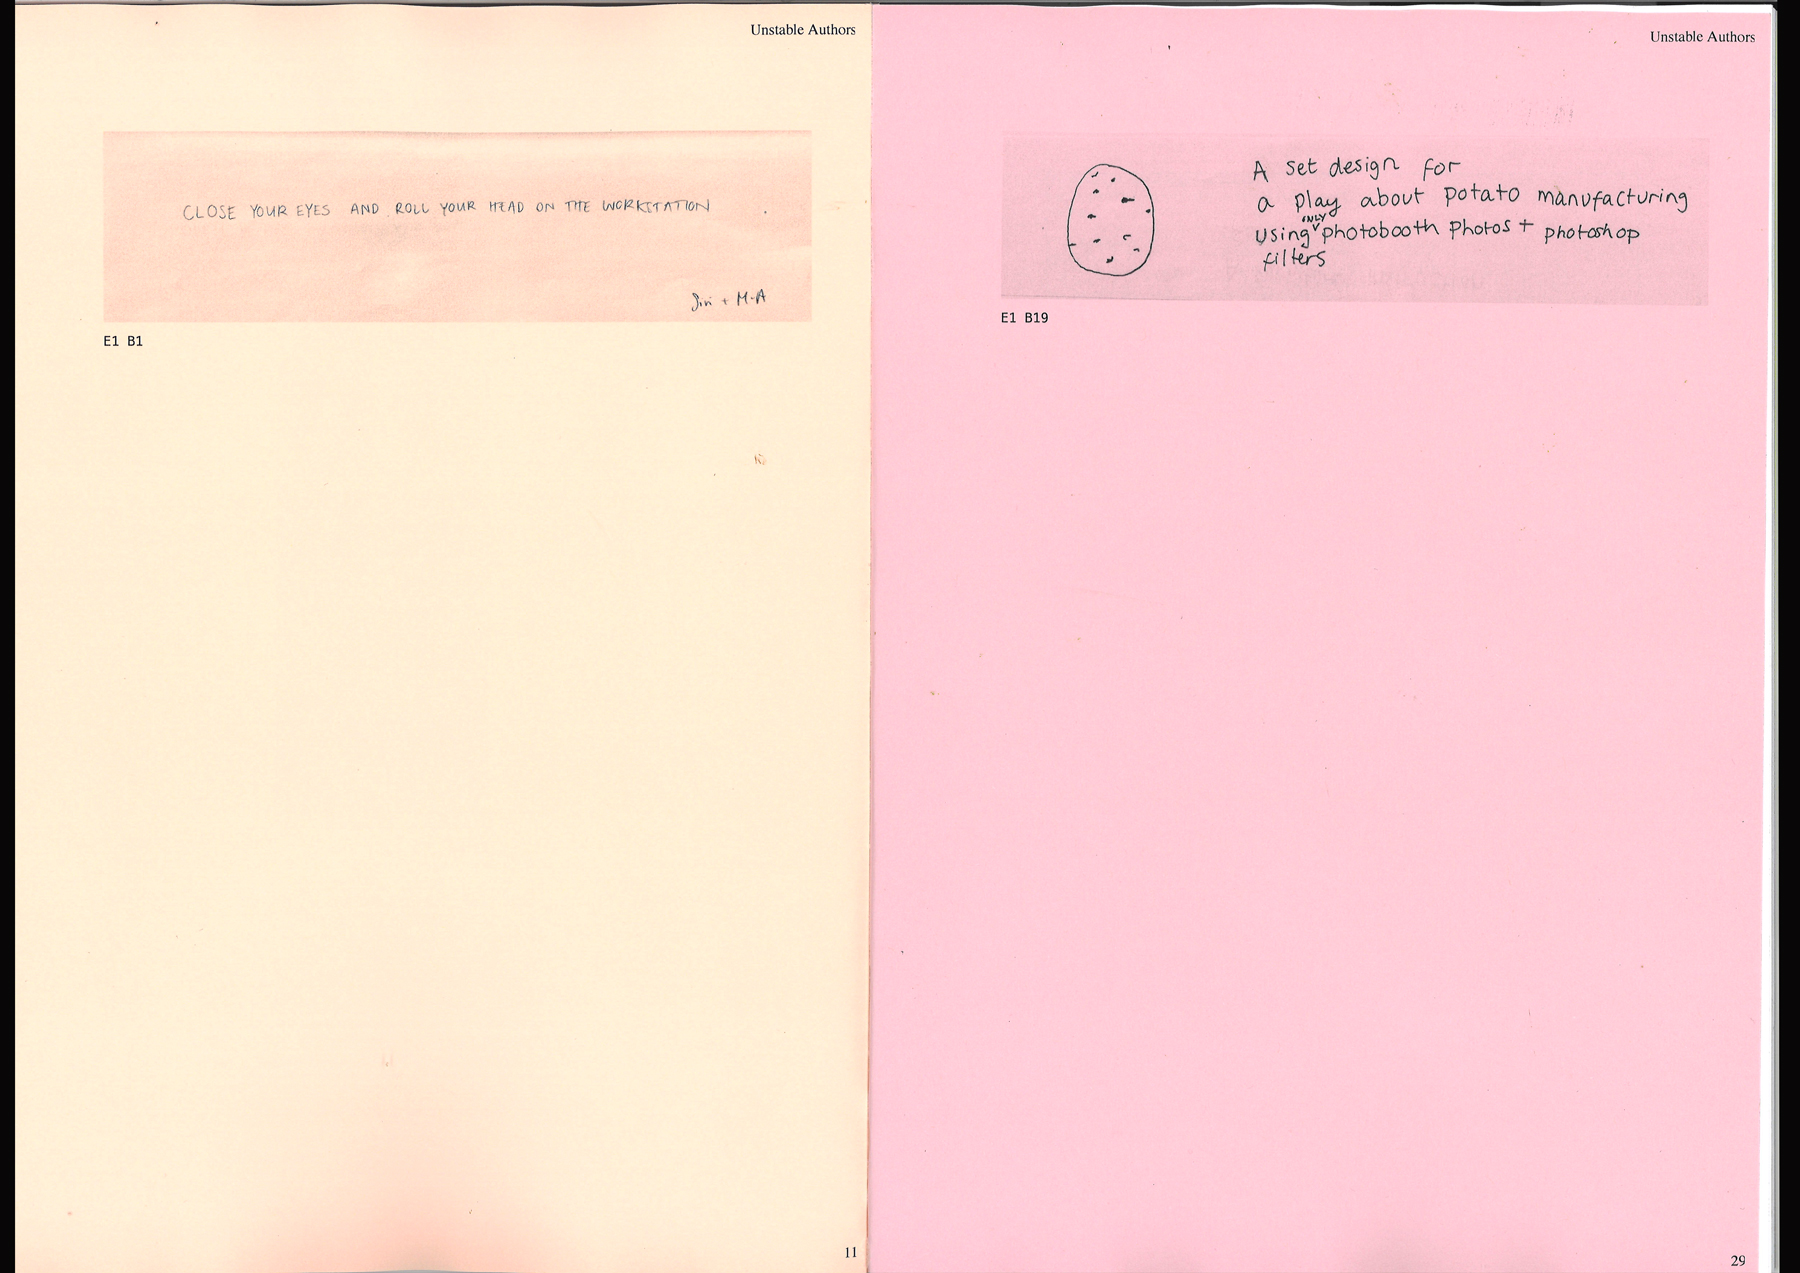 Unstable Authors
CLOSE YOUR EYES AND ROLL YOUR HEAD ON THE WORKSTATION
Siri + M-A
E1 B1
11
Unstable Authors
A set design for
a play about potato manufacturing
using ONLY photobooth photos + photoshop
filters
E1 B19
29